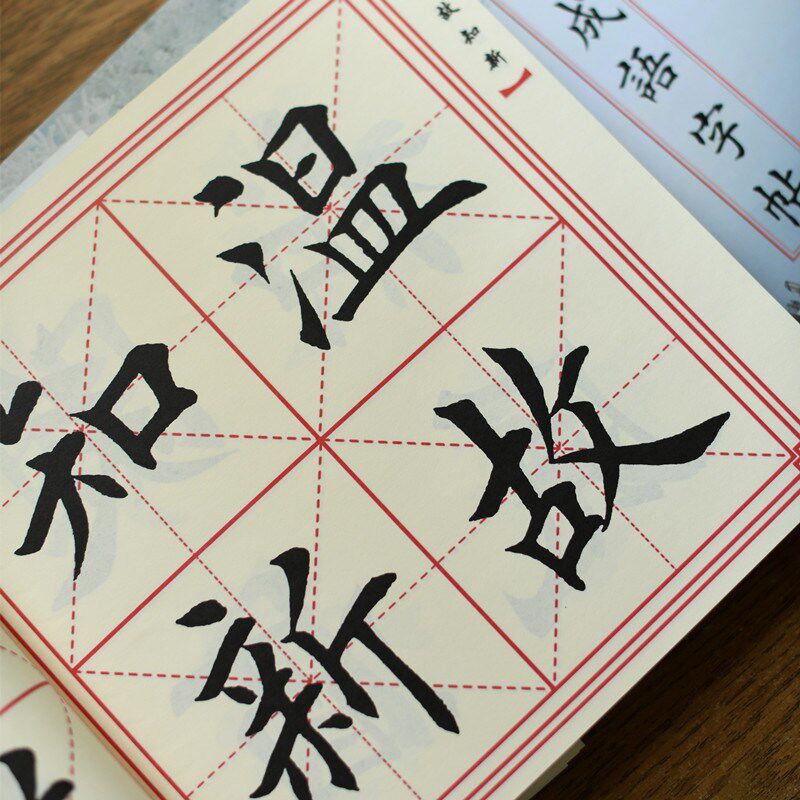 成語字帖
故知新
温故
知新